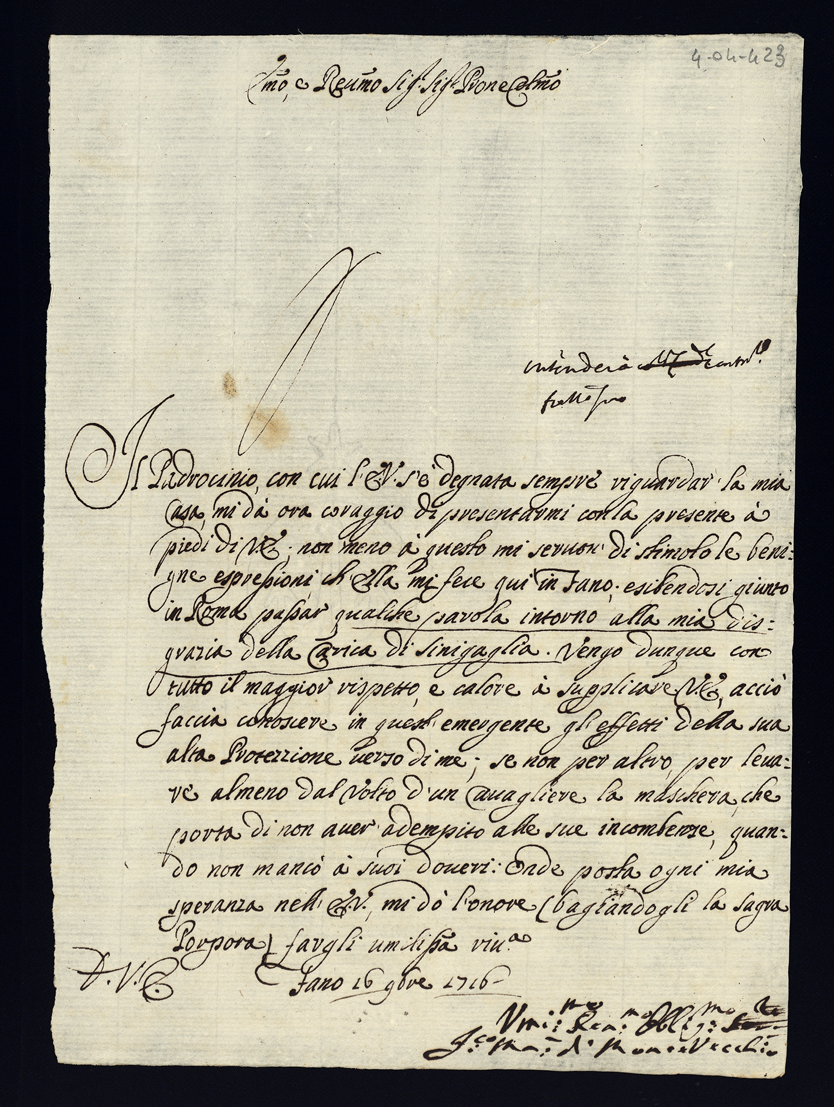 4-04-423
Emo, e Reumo Sig.r Sig.r Prone Colmo
intenderà
Il Padrocinio, con cui l'E.V. s'è degnata sempre riguardar la mia
Casa, mi dà ora coraggio di presentarmi con la presente à
piedi di V.E.; non meno à questo mi servon di stimolo le beni=
gne espressioni, ch'Ella mi fece quì in Fano, esibendosi giunto
in Roma passar qualche parola intorno alla mia dis=
grazia della Carica di Sinigaglia. Vengo dunque con
tutto il maggior rispetto, e calore à supplicare V.E., acciò
faccia conoscere in quest'emergente gl'effetti della sua
alta Protezzione verso di me; se non per altro, per leva=
re almeno dal Volto d'un Cavagliere la maschera, che
porta di non aver adempito alle sue incombenze, quan=
do non mancò à suoi doveri: Onde posta ogni mia
speranza nell'E.V., mi dò l'onore (bagiandogli la Sagra
Porpora) fargli umilissa riv.a
D.V.E.
Fano 16 9bre 1716
Vmi:mo Deu:mo Oblig:mo
Monte Vecchio